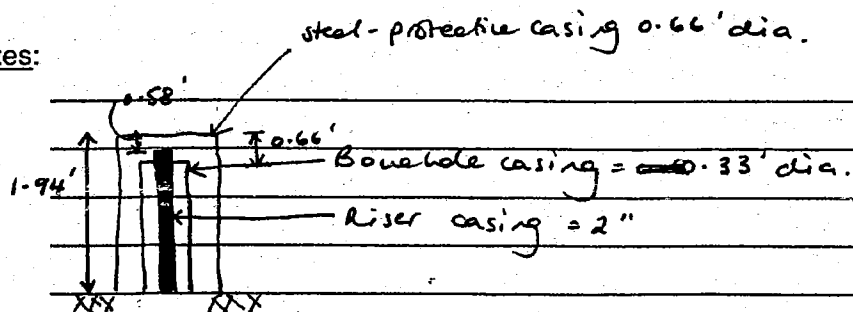 steel-protective casing 0.66' dia.
tes:
0.58'
0.66'
Borehole casing = 0.33' dia.
1.94'
Riser casing = 2"
XXX XXX